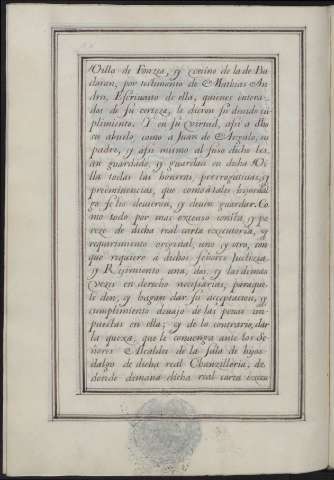 Villa de Fonzea, y vecino de la de Ba
daran, por testimonio de Mathias An
dres, Escrivano de ella, quienes intera
dos de su certeza, le dieron su devido cu
plimiento. Y en su virtud, asi a dho
su abuelo, como a Juan de Arzalo, su
padre, y asi mismo al suso dicho les
an guardado, y guardan en dicha Vi
lla todas las honrras, prerrogativas, y
preeminencias, que como a tales hijosdal
go se les devieron, y deven guardar. Co
mo todo por mas extenso consta, y pa
reze de dicha real carta executoria, y
requerimiento original, uno y otro, con
que requiero a dichos Señores Justizia
y Rejimiento una, dos, y las demas
vezes en derecho necesarias, para que
le den, y hagan dar su aceptacion, y
cumplimiento devajo de las penas im
puestas en ella; y de lo contrario, dar
la quexa, que le convenga ante los Se
ñores Alcaldes de la sala de hijos
dalgo de dicha real Chanzilleria, de
donde demana dicha real carta execu